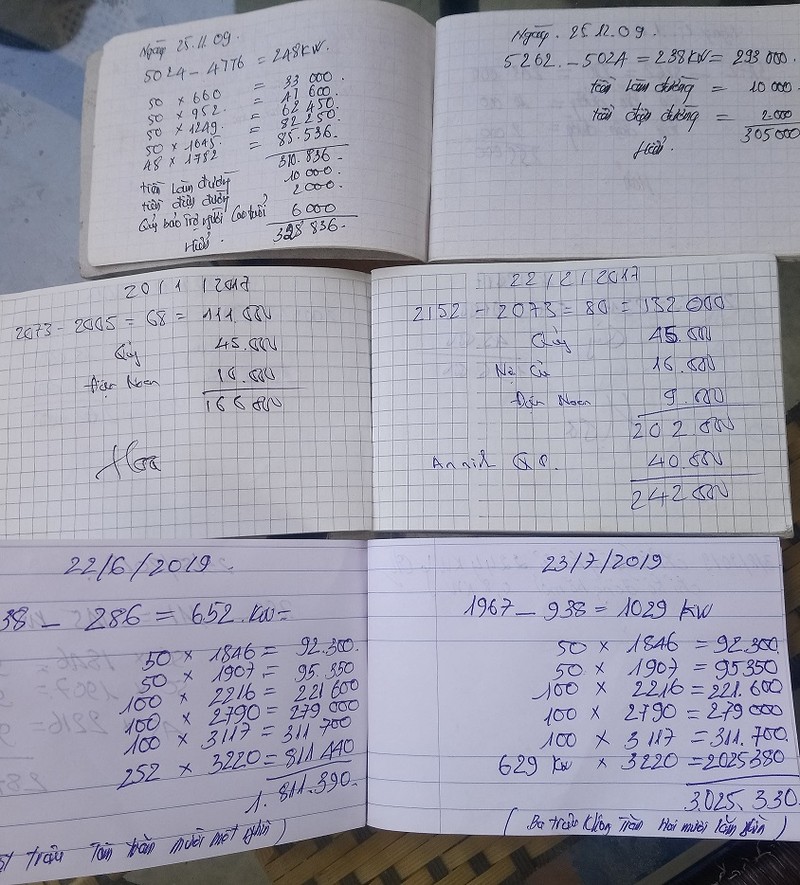 Ngày. 25.11.09.
5024 - 4776 = 248KW.
50 × 660 = 33 000.
50 × 952. = 47 600.
50 × 1249. = 62 450.
50 × 1645. = 82 250.
48 × 1782 = 85.536.
310.836 -
tiền làm đường 10 000.
tiền điện đường 2 000.
Qũy bảo trợ người Cao tuổi 6 000
Hiển. 328 836.-
Ngày. 25.12.09.
5262. - 5024 = 238KW = 293 000.
tiền làm đường = 10 000.
tiền điện đường = 2 000
305 000
Hiển.
20/1/2017
2073 - 2005 = 68 = 111.000
Qũy 45.000
Điện Noen 10.000
166 000
Hoa
22/2/2017
2152 - 2073 = 80 = 132 000
Qũy 45.000
Nợ Cũ 16.000
Điện Noen 9.000
202 000
An ninh Q P. 40.000
242 000
22/6/2019.
38 - 286 = 652 KW =
50 × 1846 = 92.300.
50 × 1907 = 95.350
100 × 2216 = 221 600
100 × 2790 = 279 000
100 × 3117 = 311 700
252 × 3220 = 811 440
1. 811.390.
triệu Tám trăm mười một nghìn)
23/7/2019
1967 - 938 = 1029 KW
50 × 1846 = 92.300.
50 × 1907 = 95350
100 × 2216 = 221.600
100 × 2790 = 279 000
100 × 3117 = 311.700.
629 KW × 3220 = 2025380
3.025.330.
(Ba triệu Không Trăm Hai mười lăm nghìn)